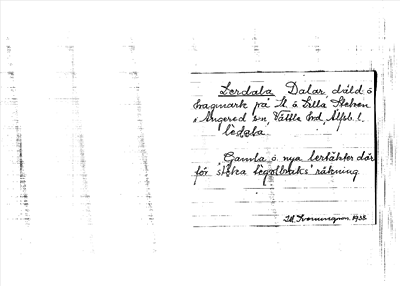 Lerdala Dalar, däld ö
hagmark på St ö Lilla Steken
i Angered s:n, Vättle hd, Älfsb. l.
lèdala
Gamla ö nya lertäkter där
för stora tegelbruks räkning
1938